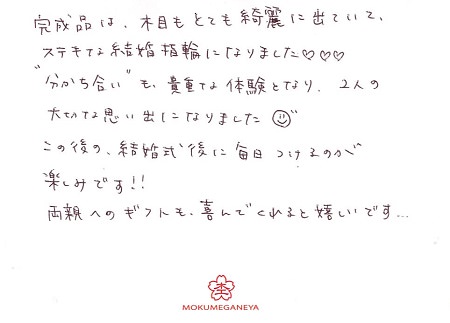 完成品は、木目もとても綺麗に出ていて、
ステキな結婚指輪になりました♡♡♡
"分かち合い"も、貴重な体験となり、2人の
大切な思い出になりました☺
この後の、結婚式後に毎日つけるのが
楽しみです!!
両親へのギフトも、喜んでくれると嬉しいです…
MOKUMEGANEYA